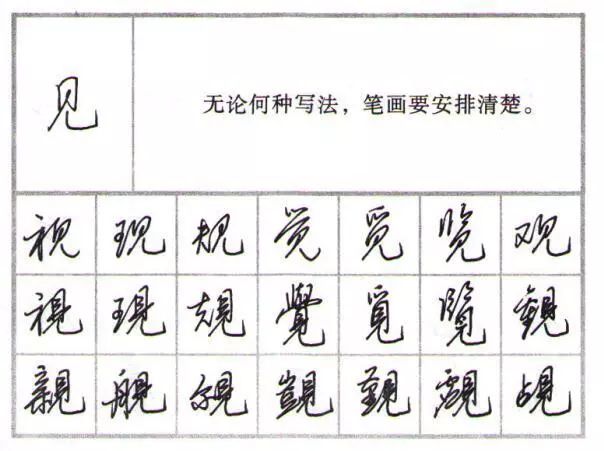 见
无论何种写法，笔画要安排清楚。
视 现 规 觉 觅 览 观
視 現 規 覺 覓 覽 觀
親 覬 覲 覷 覘